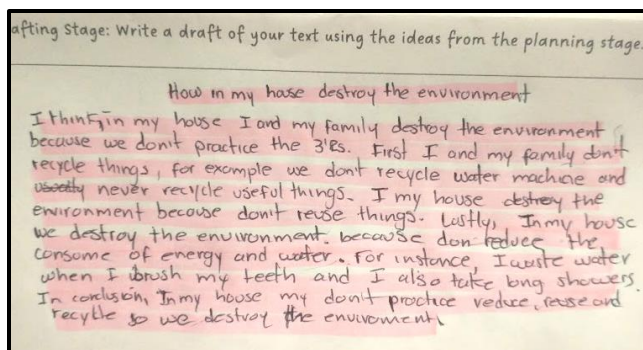 afting Stage: Write a draft of your text using the ideas from the planning stage.
How in my house destroy the environment
I think, in my house I and my family destroy the environment
because we don't practice the 3'Rs. First I and my family don't
recycle things, for example we don't recycle water machine and
usually never recycle useful things. I my house destroy the
environment because don't reuse things. Lastly, In my house
we destroy the environment. because don reduce the
consome of energy and water. For instance, I waste water
when I brush my teeth and I also take long showers.
In conclusion, In my house my don't practice reduce, reuse and
recycle so we destroy the enviroment.